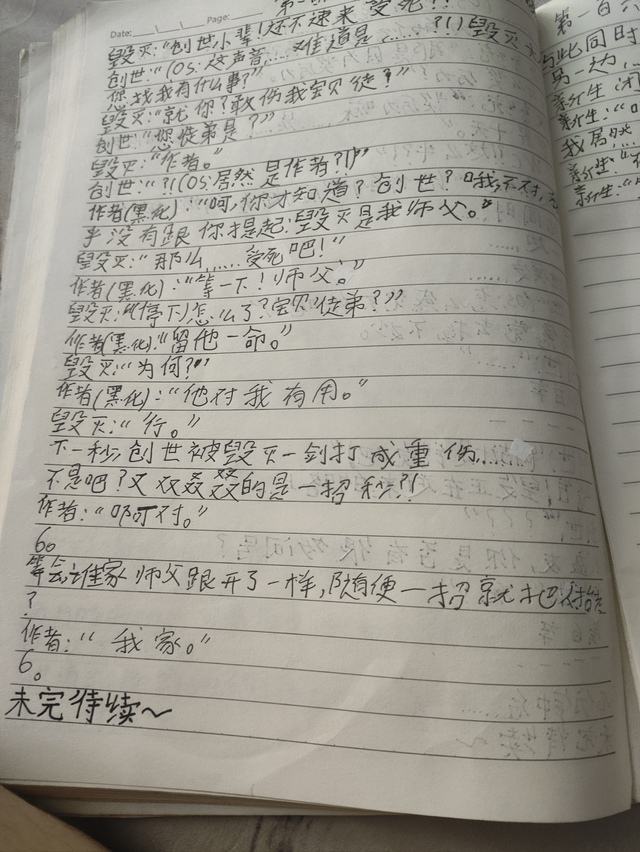 Date:
Page:
毁灭:“创世小辈!还不速来受死!!
创世:“(OS:这声音……难道是……?!)毁灭大
您找我有什么事?”
毁灭:“就你?敢伤我宝贝徒?”
创世:“您徒弟是?”
毁灭:“作者。”
创世:“?!(OS:居然是作者?!)”
作者(黑化):“呵,你才知道?创世?哦,不不对,
乎没有跟你提起:毁灭是我师父。”
毁灭:“那么……受死吧!”
作者(黑化):“等一下!师父。”
毁灭:“(停下)怎么了?宝贝徒弟?”
作者(黑化):“留他一命。”
毁灭:“为何?”
作者(黑化):“他对我有用。”
毁灭:“行。”
下一秒,创世被毁灭一剑打成重伤……
不是吧?又双叒叕的是一招秒?!
作者:“
6。
等会,谁家师父跟开了一样,随便一招就把
?
作者:“我家。”
6。
未完待续~
第一百
与此同时
新生:“
我居然
新生:“
新生:“